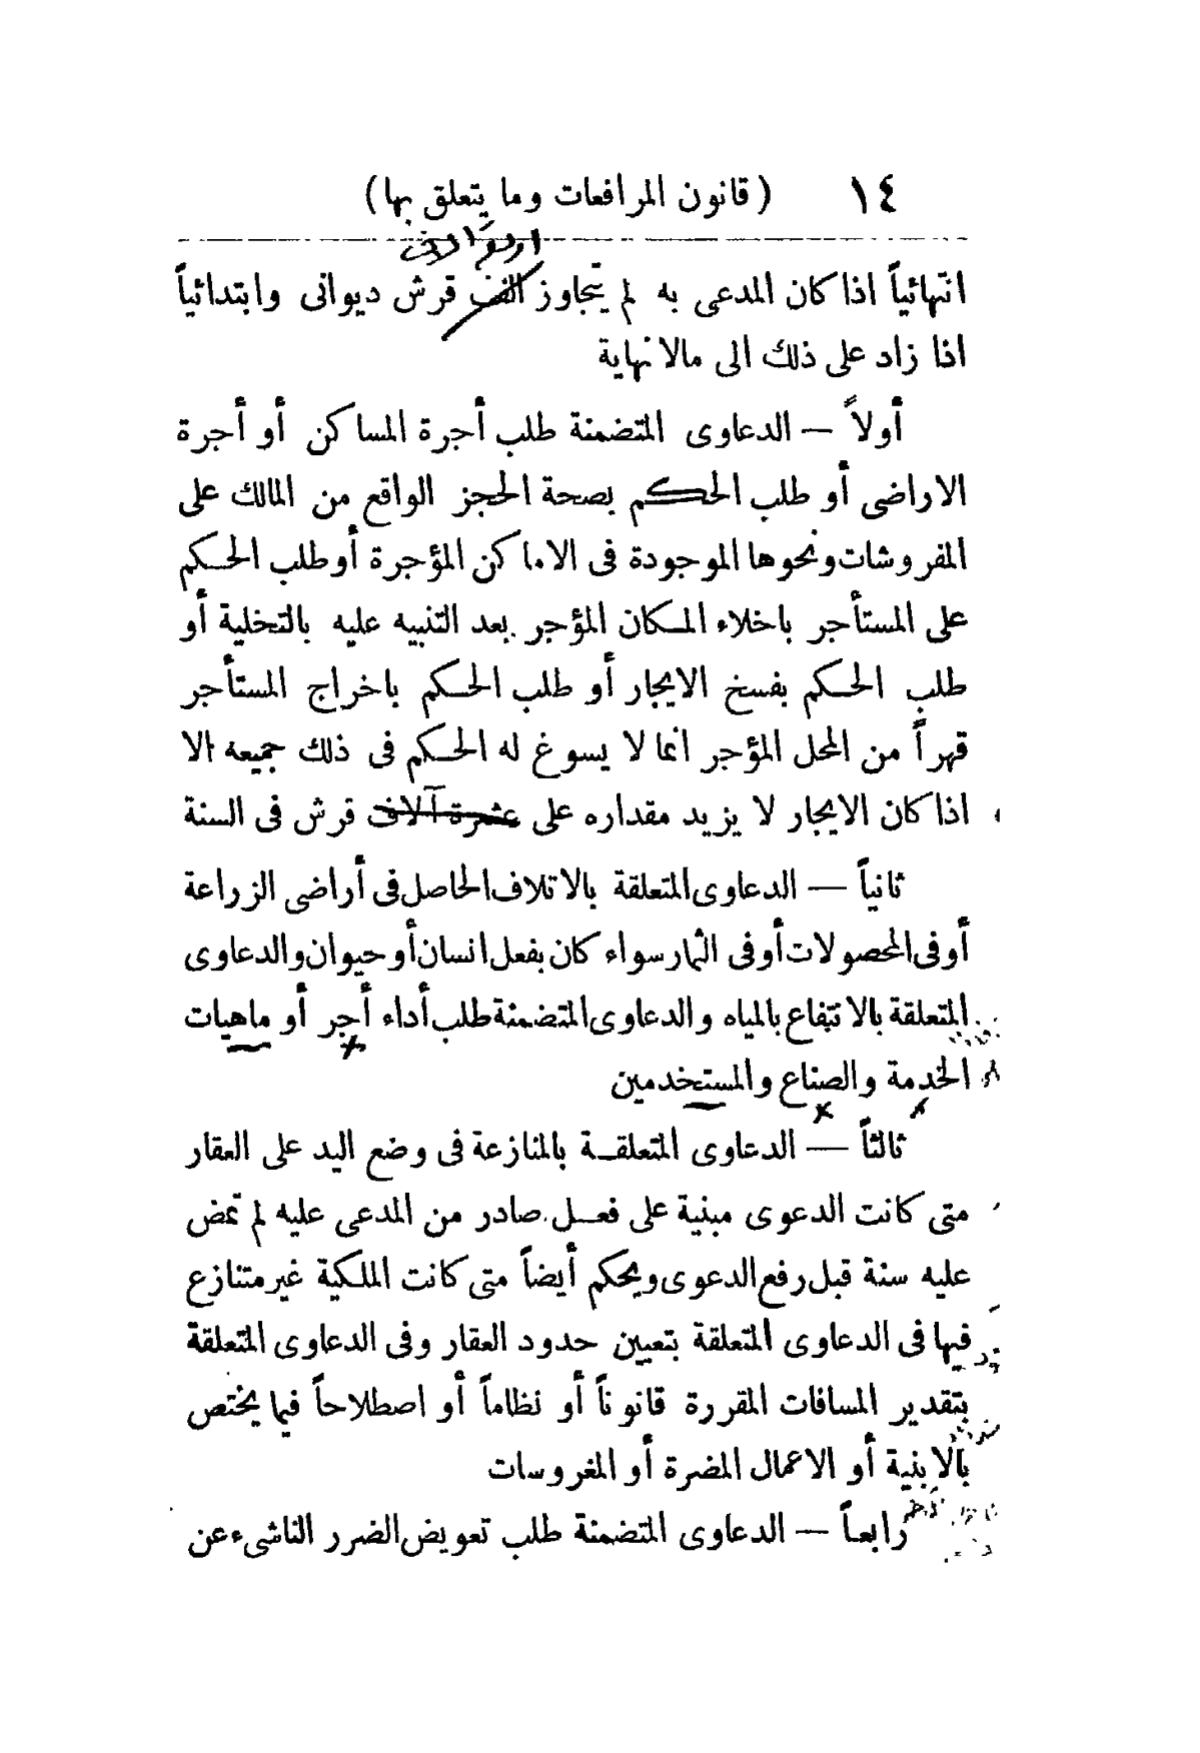 ١٤ (قانون المرافعات وما يتعلق بها)
اربعة آلاف
انتهائياً اذا كان المدعى به لم يتجاوز الف قرش ديوانى وابتدائياً
اذا زاد على ذلك الى مالا نهاية
أولاً — الدعاوى المتضمنة طلب أجرة المساكن أو أجرة
الاراضى أو طلب الحكم بصحة الحجز الواقع من المالك على
المفروشات ونحوها الموجودة فى الاماكن المؤجرة أو طلب الحكم
على المستأجر باخلاء المكان المؤجر بعد التنبيه عليه بالتخلية أو
طلب الحكم بفسخ الايجار أو طلب الحكم باخراج المستأجر
قهراً من المحل المؤجر انما لا يسوغ له الحكم فى ذلك جميعه الا
اذا كان الايجار لا يزيد مقداره على عشرة آلاف قرش فى السنة
ثانياً — الدعاوى المتعلقة بالاتلاف الحاصل فى أراضى الزراعة
أو فى المحصولات أو فى الثمار سواء كان بفعل انسان أو حيوان والدعاوى
المتعلقة بالانتفاع بالمياه والدعاوى المتضمنة طلب أداء أجر أو ماهيات
الخدمة والصناع والمستخدمين
ثالثاً — الدعاوى المتعلقة بالمنازعة فى وضع اليد على العقار
متى كانت الدعوى مبنية على فعل صادر من المدعى عليه لم تمض
عليه سنة قبل رفع الدعوى ويحكم أيضاً متى كانت الملكية غير متنازع
فيها فى الدعاوى المتعلقة بتعيين حدود العقار وفى الدعاوى المتعلقة
بتقدير المسافات المقررة قانوناً أو نظاماً أو اصطلاحاً فيما يختص
بالابنية أو الاعمال المضرة أو المغروسات
رابعاً — الدعاوى المتضمنة طلب تعويض الضرر الناشىء عن